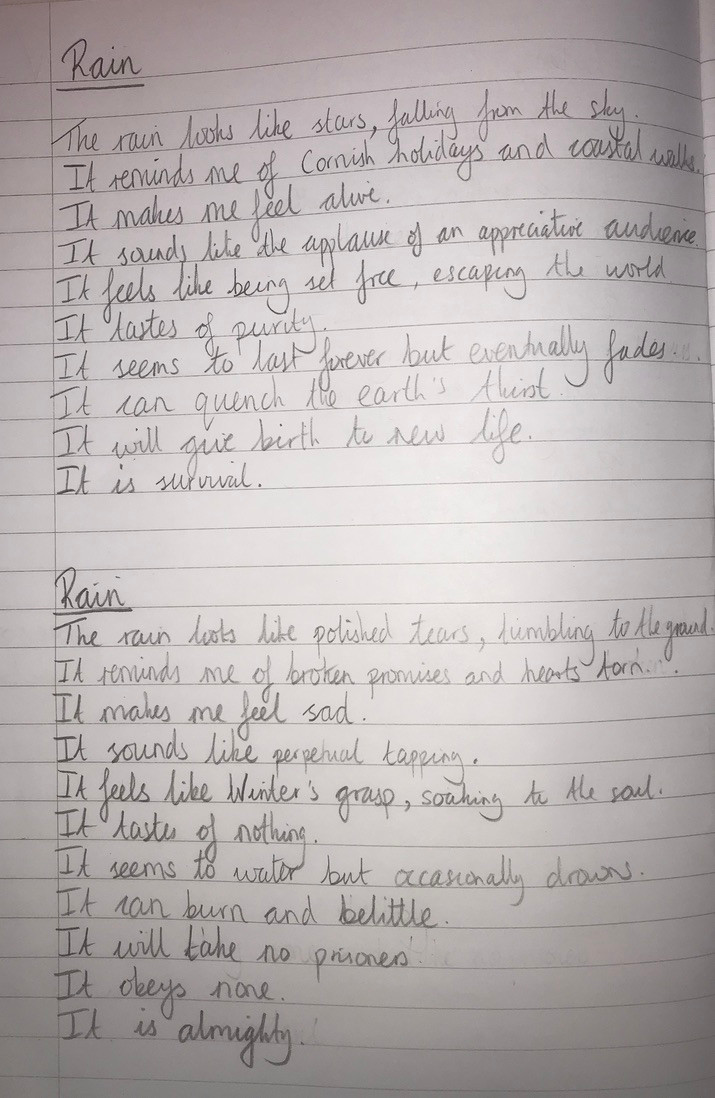 Rain
The rain looks like stars, falling from the sky.
It reminds me of Cornish holidays and coastal walks.
It makes me feel alive.
It sounds like the applause of an appreciative audience.
It feels like being set free, escaping the world
It tastes of purity.
It seems to last forever but eventually fades...
It can quench the earth's thirst.
It will give birth to new life.
It is survival.
Rain
The rain looks like polished tears, tumbling to the ground.
It reminds me of broken promises and hearts torn.
It makes me feel sad.
It sounds like perpetual tapping.
It feels like Winter's grasp, soaking to the soul.
It tastes of nothing.
It seems to water but occasionally drowns.
It can burn and belittle.
It will take no prisoners.
It obeys none.
It is almighty.